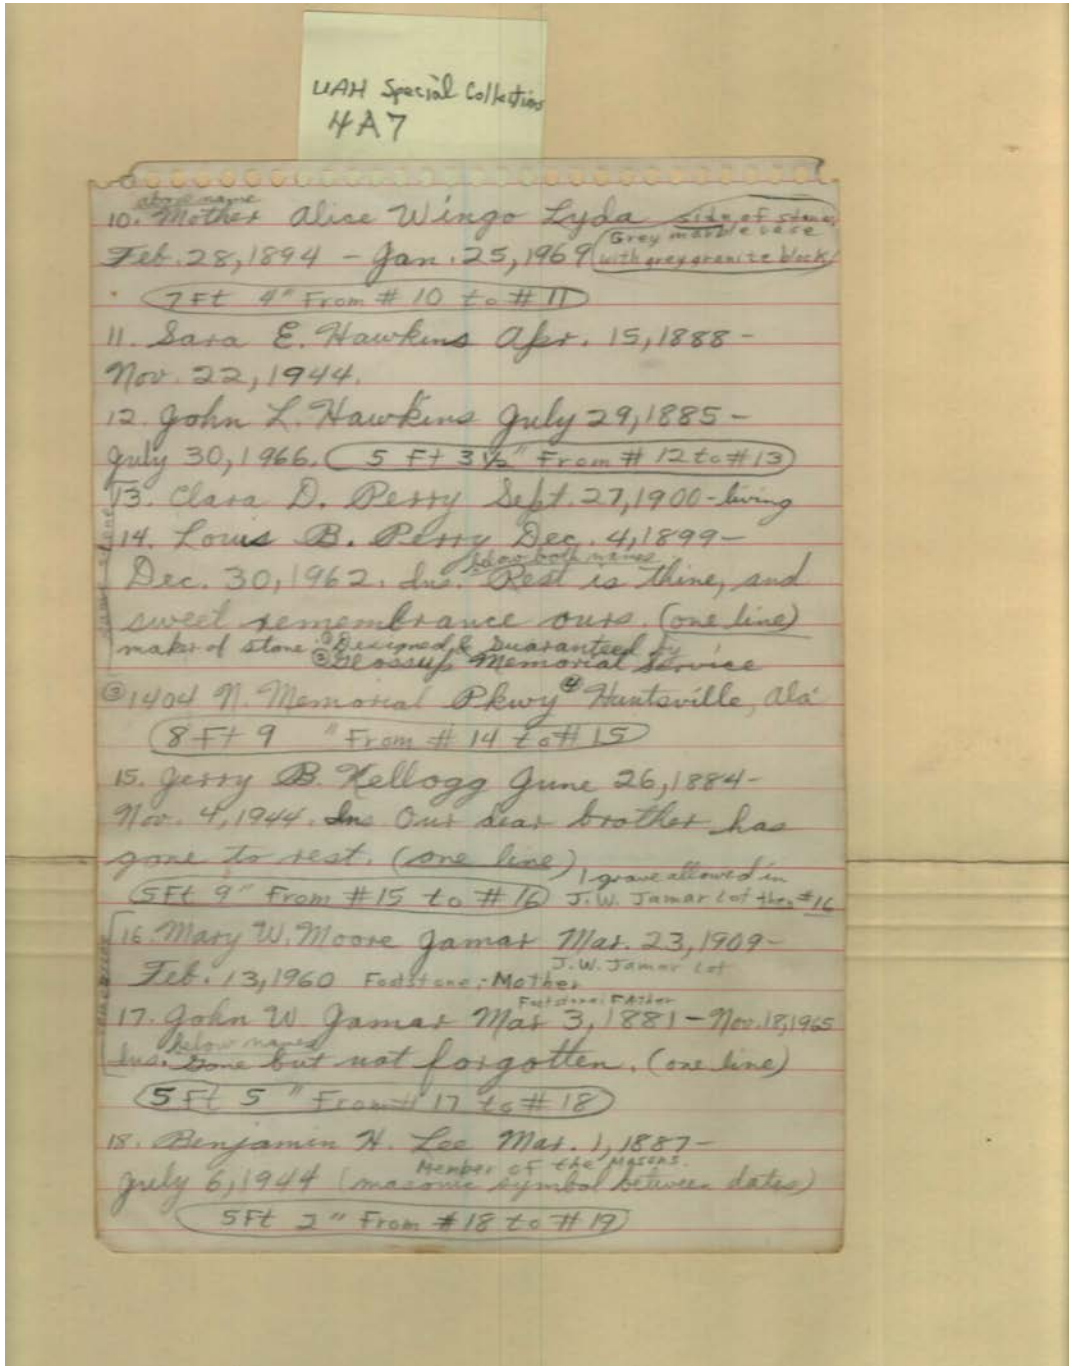 UAH Special Collection
4A7
above name
10. Mother Alice Wingo Lyda side of stone,
Grey marble base
Feb. 28, 1894 - Jan. 25, 1969 with grey granite block
7 Ft 4" From # 10 to # 11
11. Sara E. Hawkins Apr. 15, 1888 -
Nov. 22, 1944.
12. John L. Hawkins July 29, 1885 -
July 30, 1966. 5 Ft 3 1/2" From # 12 to # 13
13. Clara D. Perry Sept. 27, 1900 - living
14. Louis B. Perry Dec. 4, 1899 -
below both names
Dec. 30, 1962. Ins. Rest is thine, and
sweet remembrance ours. (one line)
same stone
maker of stone: ① Designed & Guaranteed by
② Glossup Memorial Service
③ 1404 N. Memorial Pkwy ④ Huntsville, Ala
8 Ft 9 " From # 14 to # 15
15. Jerry B. Kellogg June 26, 1884 -
Nov. 4, 1944. Ins Our dear brother has
gone to rest. (one line)
1 grave allowed in
5 Ft 9" From # 15 to # 16 J.W. Jamar Lot then # 16
16. Mary W. Moore Jamar Mar. 23, 1909 -
J.W. Jamar Lot
Feb. 13, 1960 Footstone: Mother
Footstone: FAther
17. John W Jamar Mar 3, 1881 - Nov. 18, 1965
below names
Ins. Gone but not forgotten. (one line)
5 Ft 5 " From # 17 to # 18
18. Benjamin H. Lee Mar. 1, 1887 -
Member of the Masons.
July 6, 1944 (masonic symbol between dates)
5 Ft 2 " From # 18 to # 19